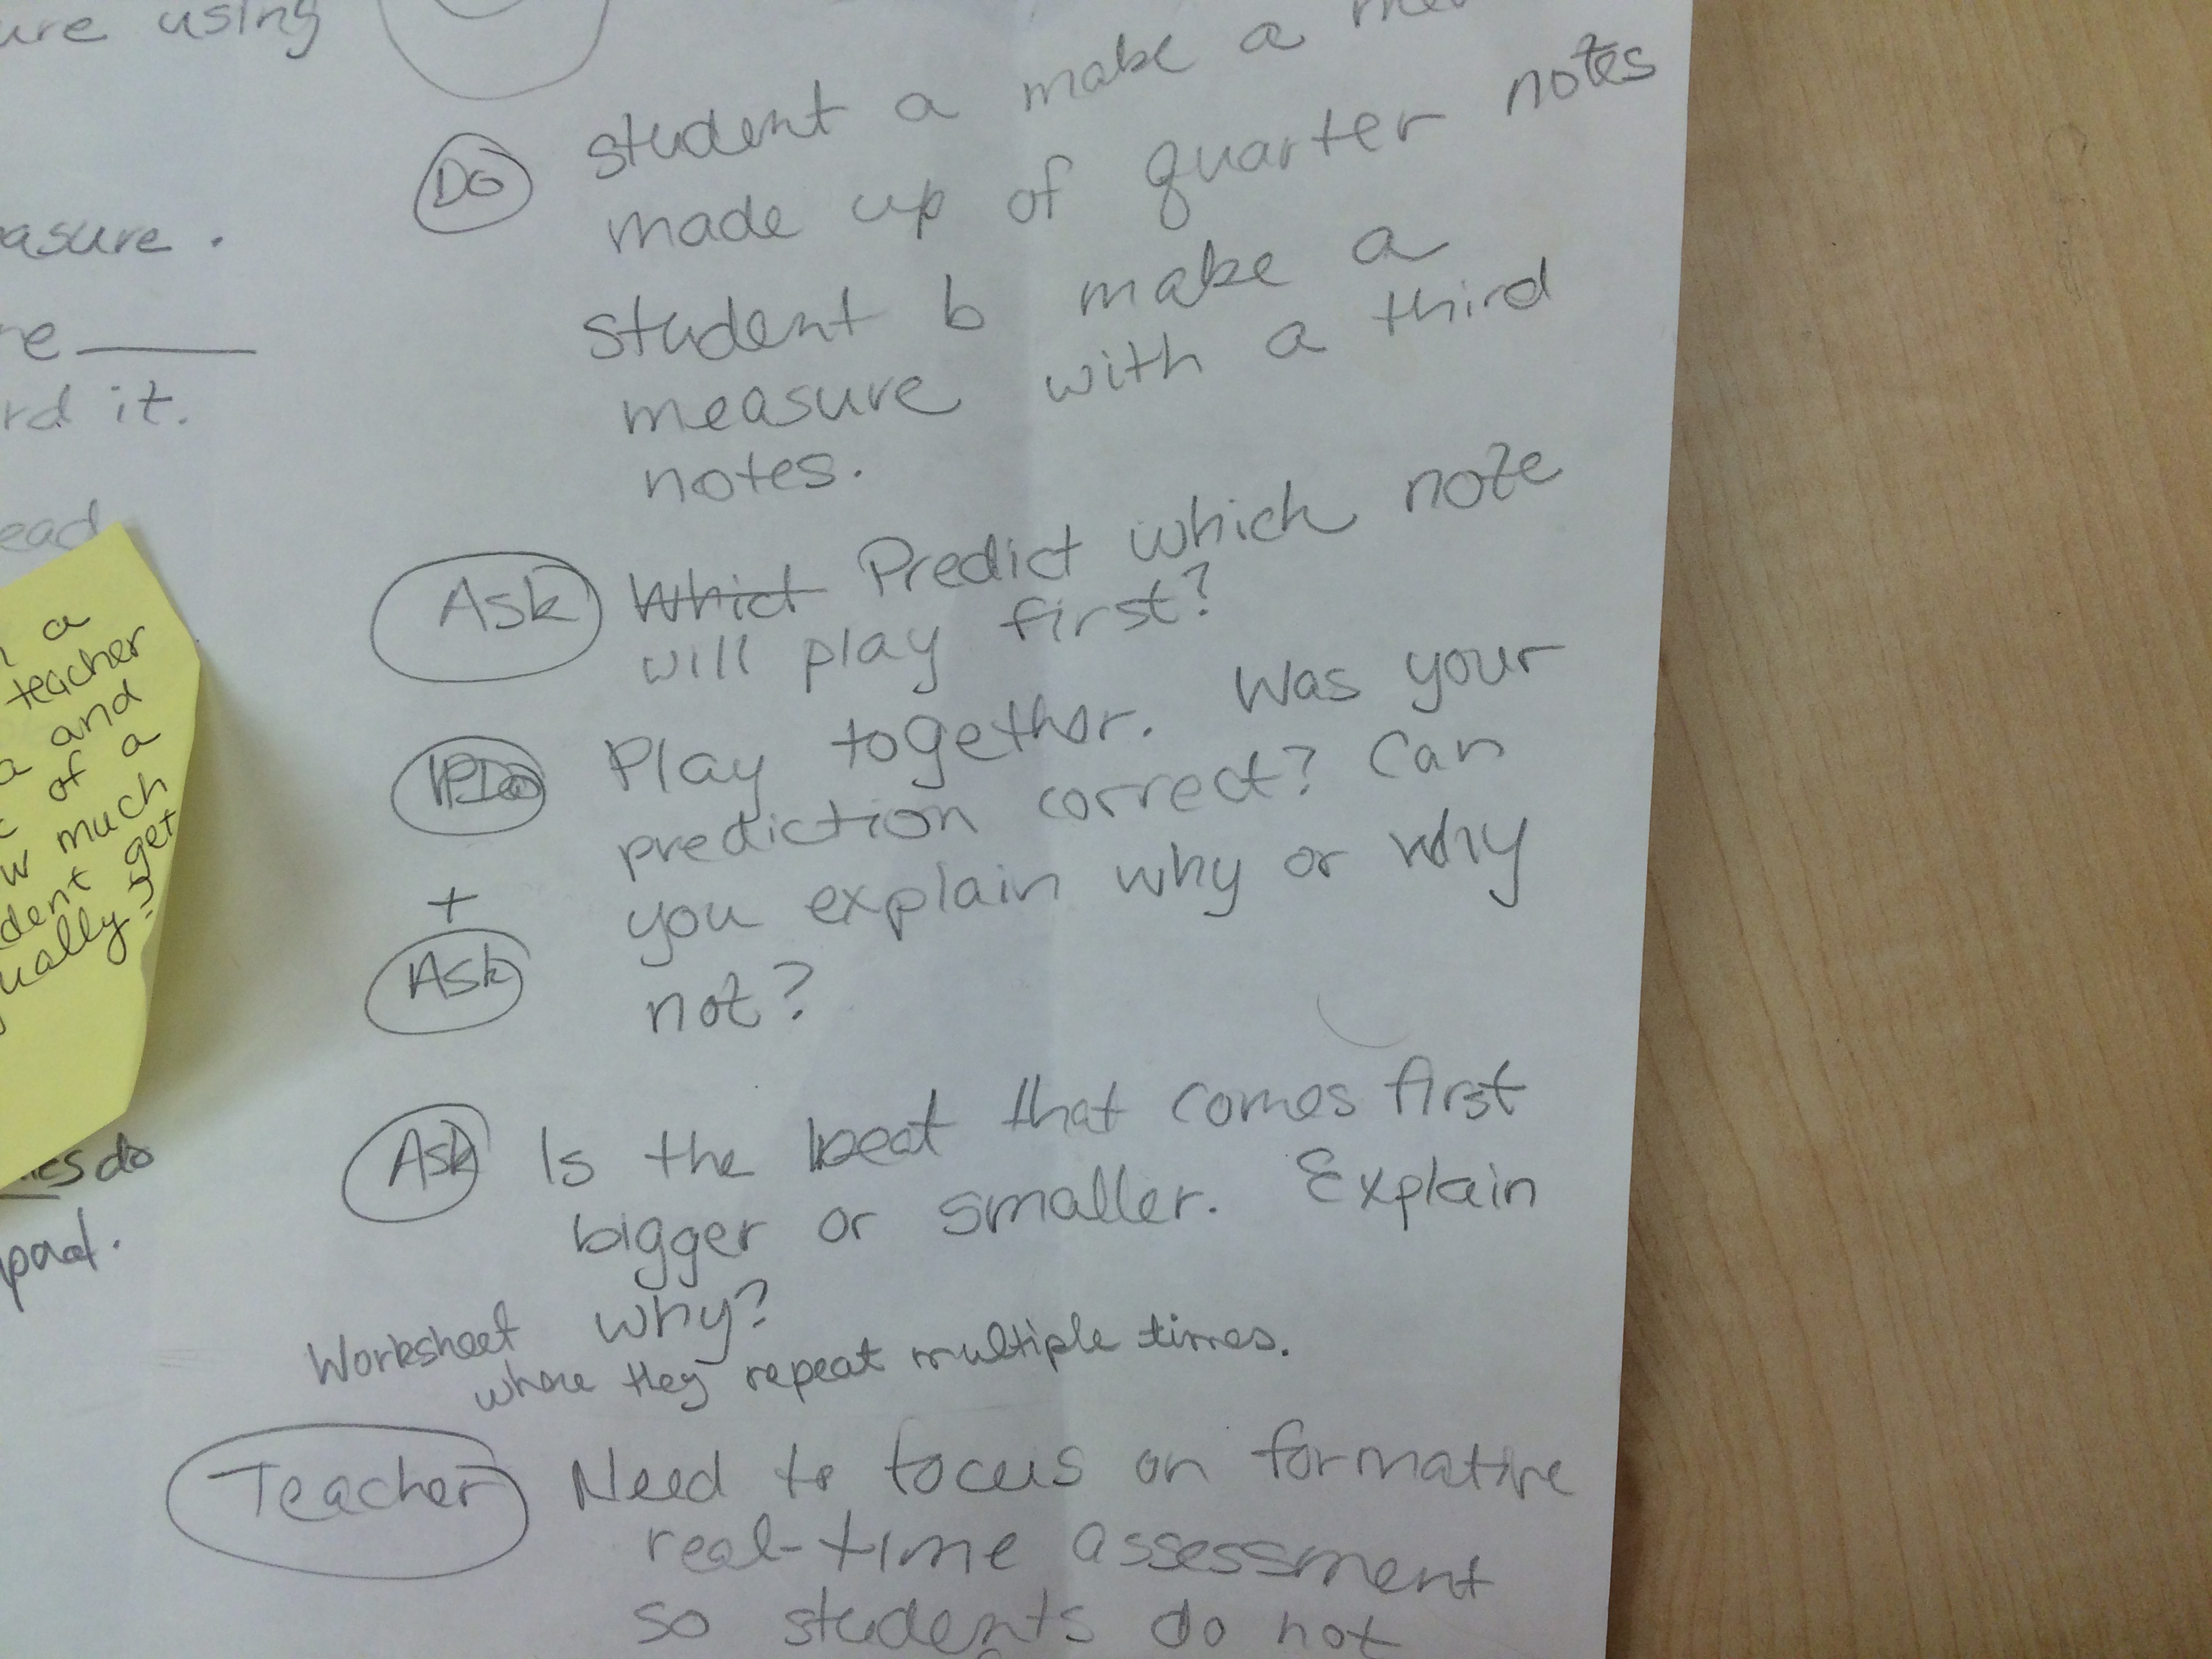 ure using
asure.
re
rd it.
ead
a
teacher
a and
of a
w much
dent get
ually?
es do
pad.
Do student a make a
made up of quarter notes
student b make a
measure with a third
notes.
Ask Which Predict which note
will play first?
Do Play together. Was your
prediction correct? Can
+ you explain why or why
Ask not?
Ask Is the beat that comes first
bigger or smaller. Explain
why?
Worksheet
where they repeat multiple times.
Teacher Need to focus on formative
real-time assessment
so students do not